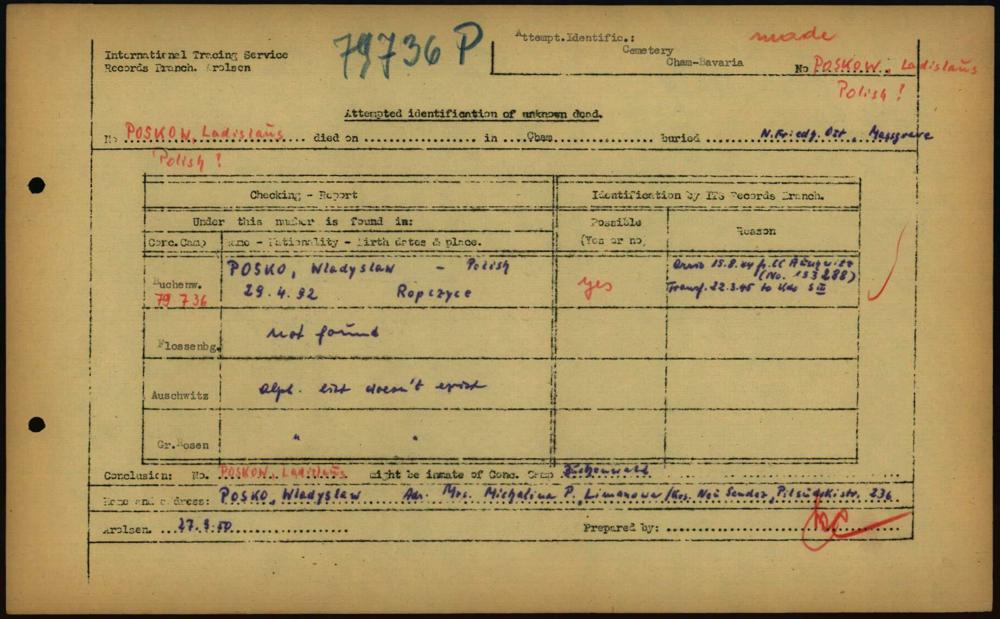 79736 P
Attempt.Identific.:
Cemetery
Cham-Bavaria
made
No POSKOW, Ladislaūs
Polish!
International Tracing Service
Records Branch. Arolsen
Attempted identification of unknown dead.
No POSKOW, Ladislaūs died on ........ in ..Cham........ buried N.Friedh. Ost, Massgrave
Polish!
Checking - Report
Identification by ITS Records Branch.
Under this number is found in:
Possible
(Yes or no)
Reason
Conc.Camp
Name - Nationality - Birth dates & place.
Buchenw.
79 736
POSKO, Wladyslaw - Polish
29.4.92 Ropczyce
yes
arriv. 15.8.44 fr. CC Auschwitz
(No. 193288)
Transf. 22.3.45 to Kdo S III
Flossenbg.
not found
Auschwitz
alph. list doesn't exist
Gr.Rosen
" "
Conclusion: No. POSKOW, Ladislaūs might be inmate of Conc. Camp Buchenwald
Name and address: POSKO, Wladyslaw Adr. Mrs. Michalina P, Limanowa/Krs. Neu Sandez, Pilsudskistr. 236
Arolsen. 27.9.50 Prepared by: